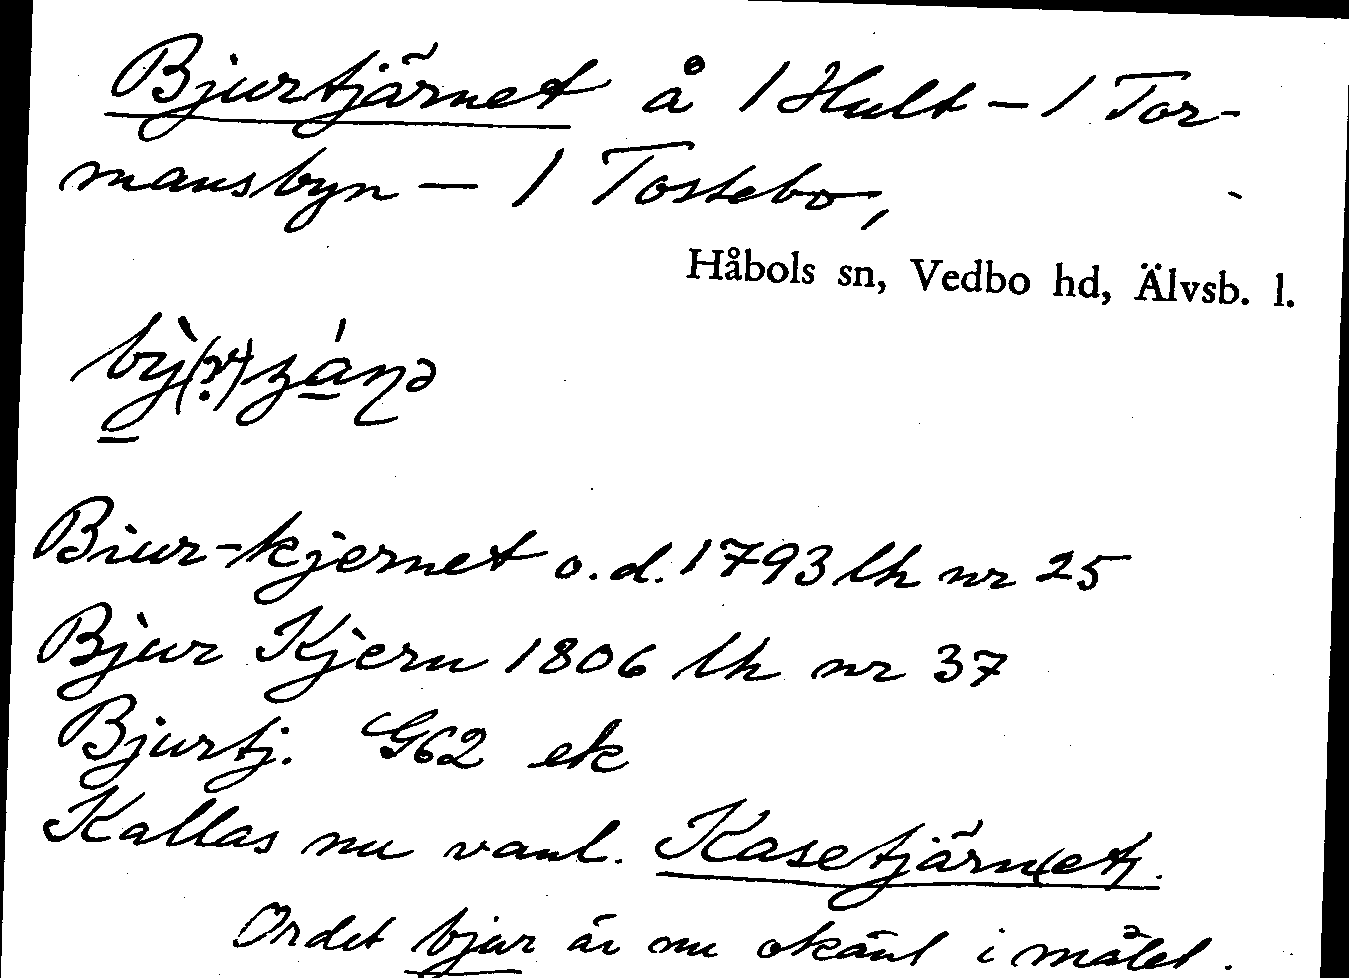 Bjurtjärnet å 1 Hult – 1 Tor-
mansbyn – 1 Tostebo,
Håbols sn, Vedbo hd, Älvsb. l.
Biur-kjernet o.d. 1793 lh nr 25
Bjur Kjern 1806 lh nr 37
Bjurtj. G62 ek
Kallas nu vanl. Kasetjärn(et).
Ordet bjur är nu okänt i målet.